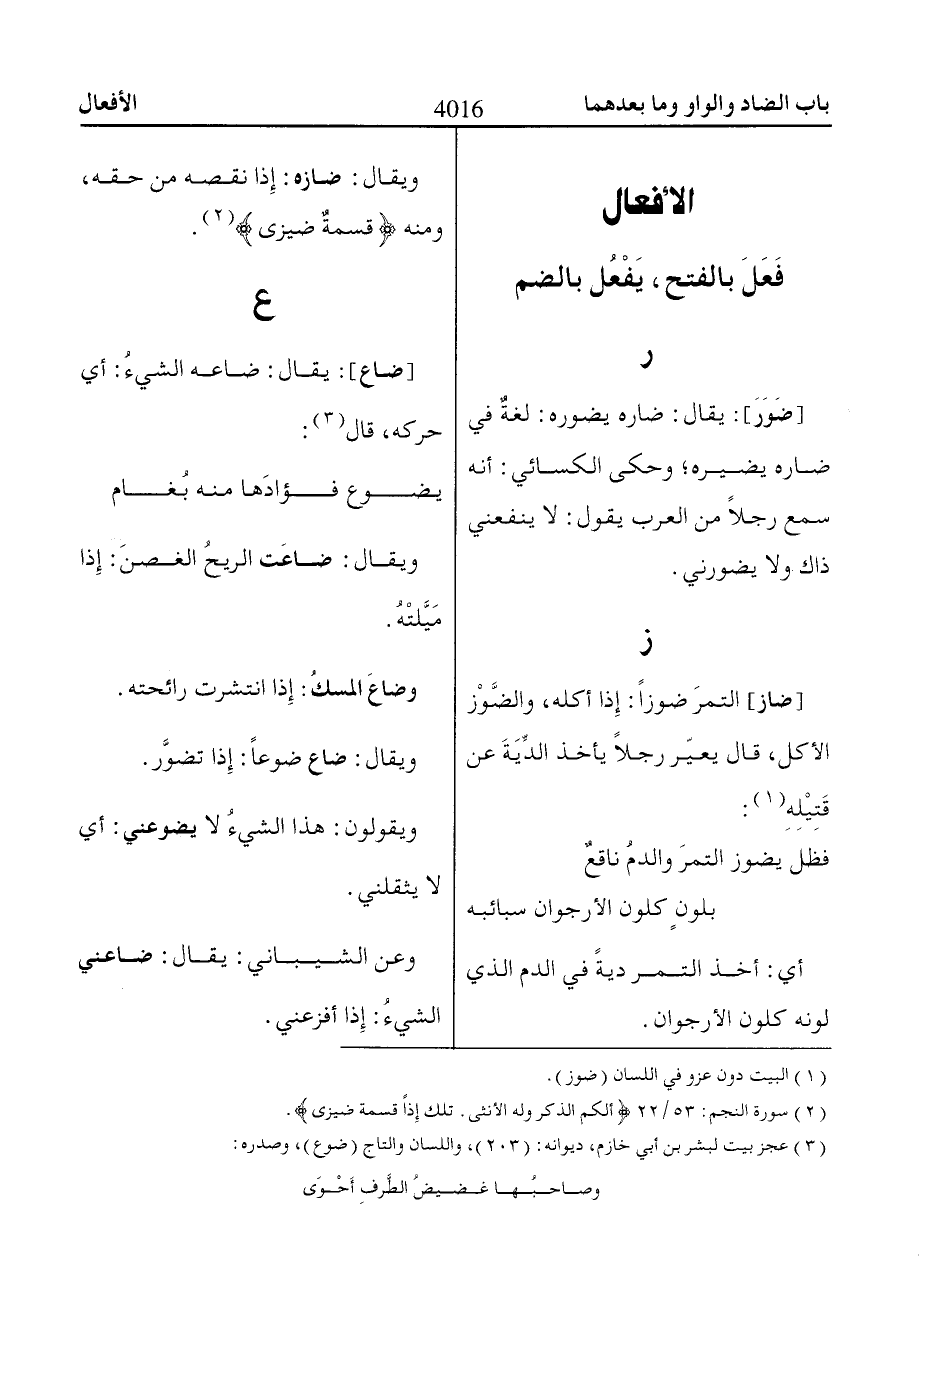 باب الضاد والواو وما بعدهما
4016
الأفعال
الأفعال
فَعَلَ بالفتح، يَفْعُل بالضم
ر
[ضَوَرَ]: يقال: ضاره يضوره: لغةٌ في
ضاره يضيره؛ وحكى الكسائي: أنه
سمع رجلاً من العرب يقول: لا ينفعني
ذاك ولا يضورني.
ز
[ضاز] التمرَ ضوزاً: إذا أكله، والضَّوْز
الأكل، قال يعيّر رجلاً يأخذ الدِّيَةَ عن
قَتِيْلِهِ(١):
فظل يضوز التمرَ والدمُ ناقعٌ
بلونٍ كلون الأرجوان سبائبه
أي: أخذ التمر ديةً في الدم الذي
لونه كلون الأرجوان.
ويقال: ضازه: إذا نقصه من حقه،
ومنه ﴿قسمةٌ ضيزى﴾(٢).
ع
[ضاع]: يقال: ضاعه الشيءُ: أي
حركه، قال(٣):
يضوع فؤادَها منه بُغام
ويقال: ضاعَت الريحُ الغصنَ: إذا
مَيَّلَتْهُ.
وضاعَ المسكُ: إذا انتشرت رائحته.
ويقال: ضاع ضوعاً: إذا تضوَّر.
ويقولون: هذا الشيءُ لا يضوعني: أي
لا يثقلني.
وعن الشيباني: يقال: ضاعني
الشيءُ: إذا أفزعني.
(١) البيت دون عزو في اللسان (ضوز).
(٢) سورة النجم: ٥٣/ ٢٢ ﴿ألكم الذكر وله الأنثى. تلك إذاً قسمة ضيزى﴾.
(٣) عجز بيت لبشر بن أبي خازم، ديوانه: (٢٠٣)، واللسان والتاج (ضوع)، وصدره:
وصاحبُها غضيضُ الطَّرفِ أَحْوَى